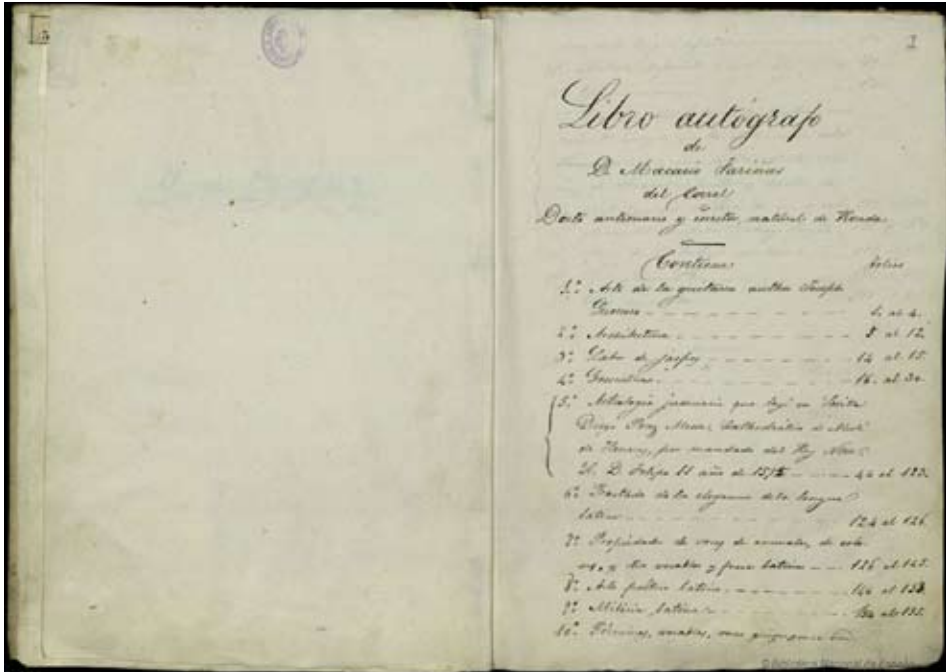 5
1
Libro autógrafo
de
D. Macario Fariñas
del Corral
Docto anticuario y escritor, natural de Ronda.
Contiene folios
1.º Arte de la guitarra author Joseph
1. al 4.
2.º Architetura 5 al 12.
3.º de 14 al 15.
4.º Geometria 16. al 30.
5.º Astrologia judiciaria que leyó en Sevilla
Diego Perez Mesa, Cathedratico de
de Henares, por mandado del Rey
D. Felipe II año de 1595 44 al 123.
6.º Tratado de la elegancia de la lengua
latina 124 al 126.
7.º Propiedades de voces de animales, de
y otros vocables y frases latinas 126 al 145.
8.º Arte poetica latina 146 al 153.
9.º Milicia latina 154 al 155.
10.º